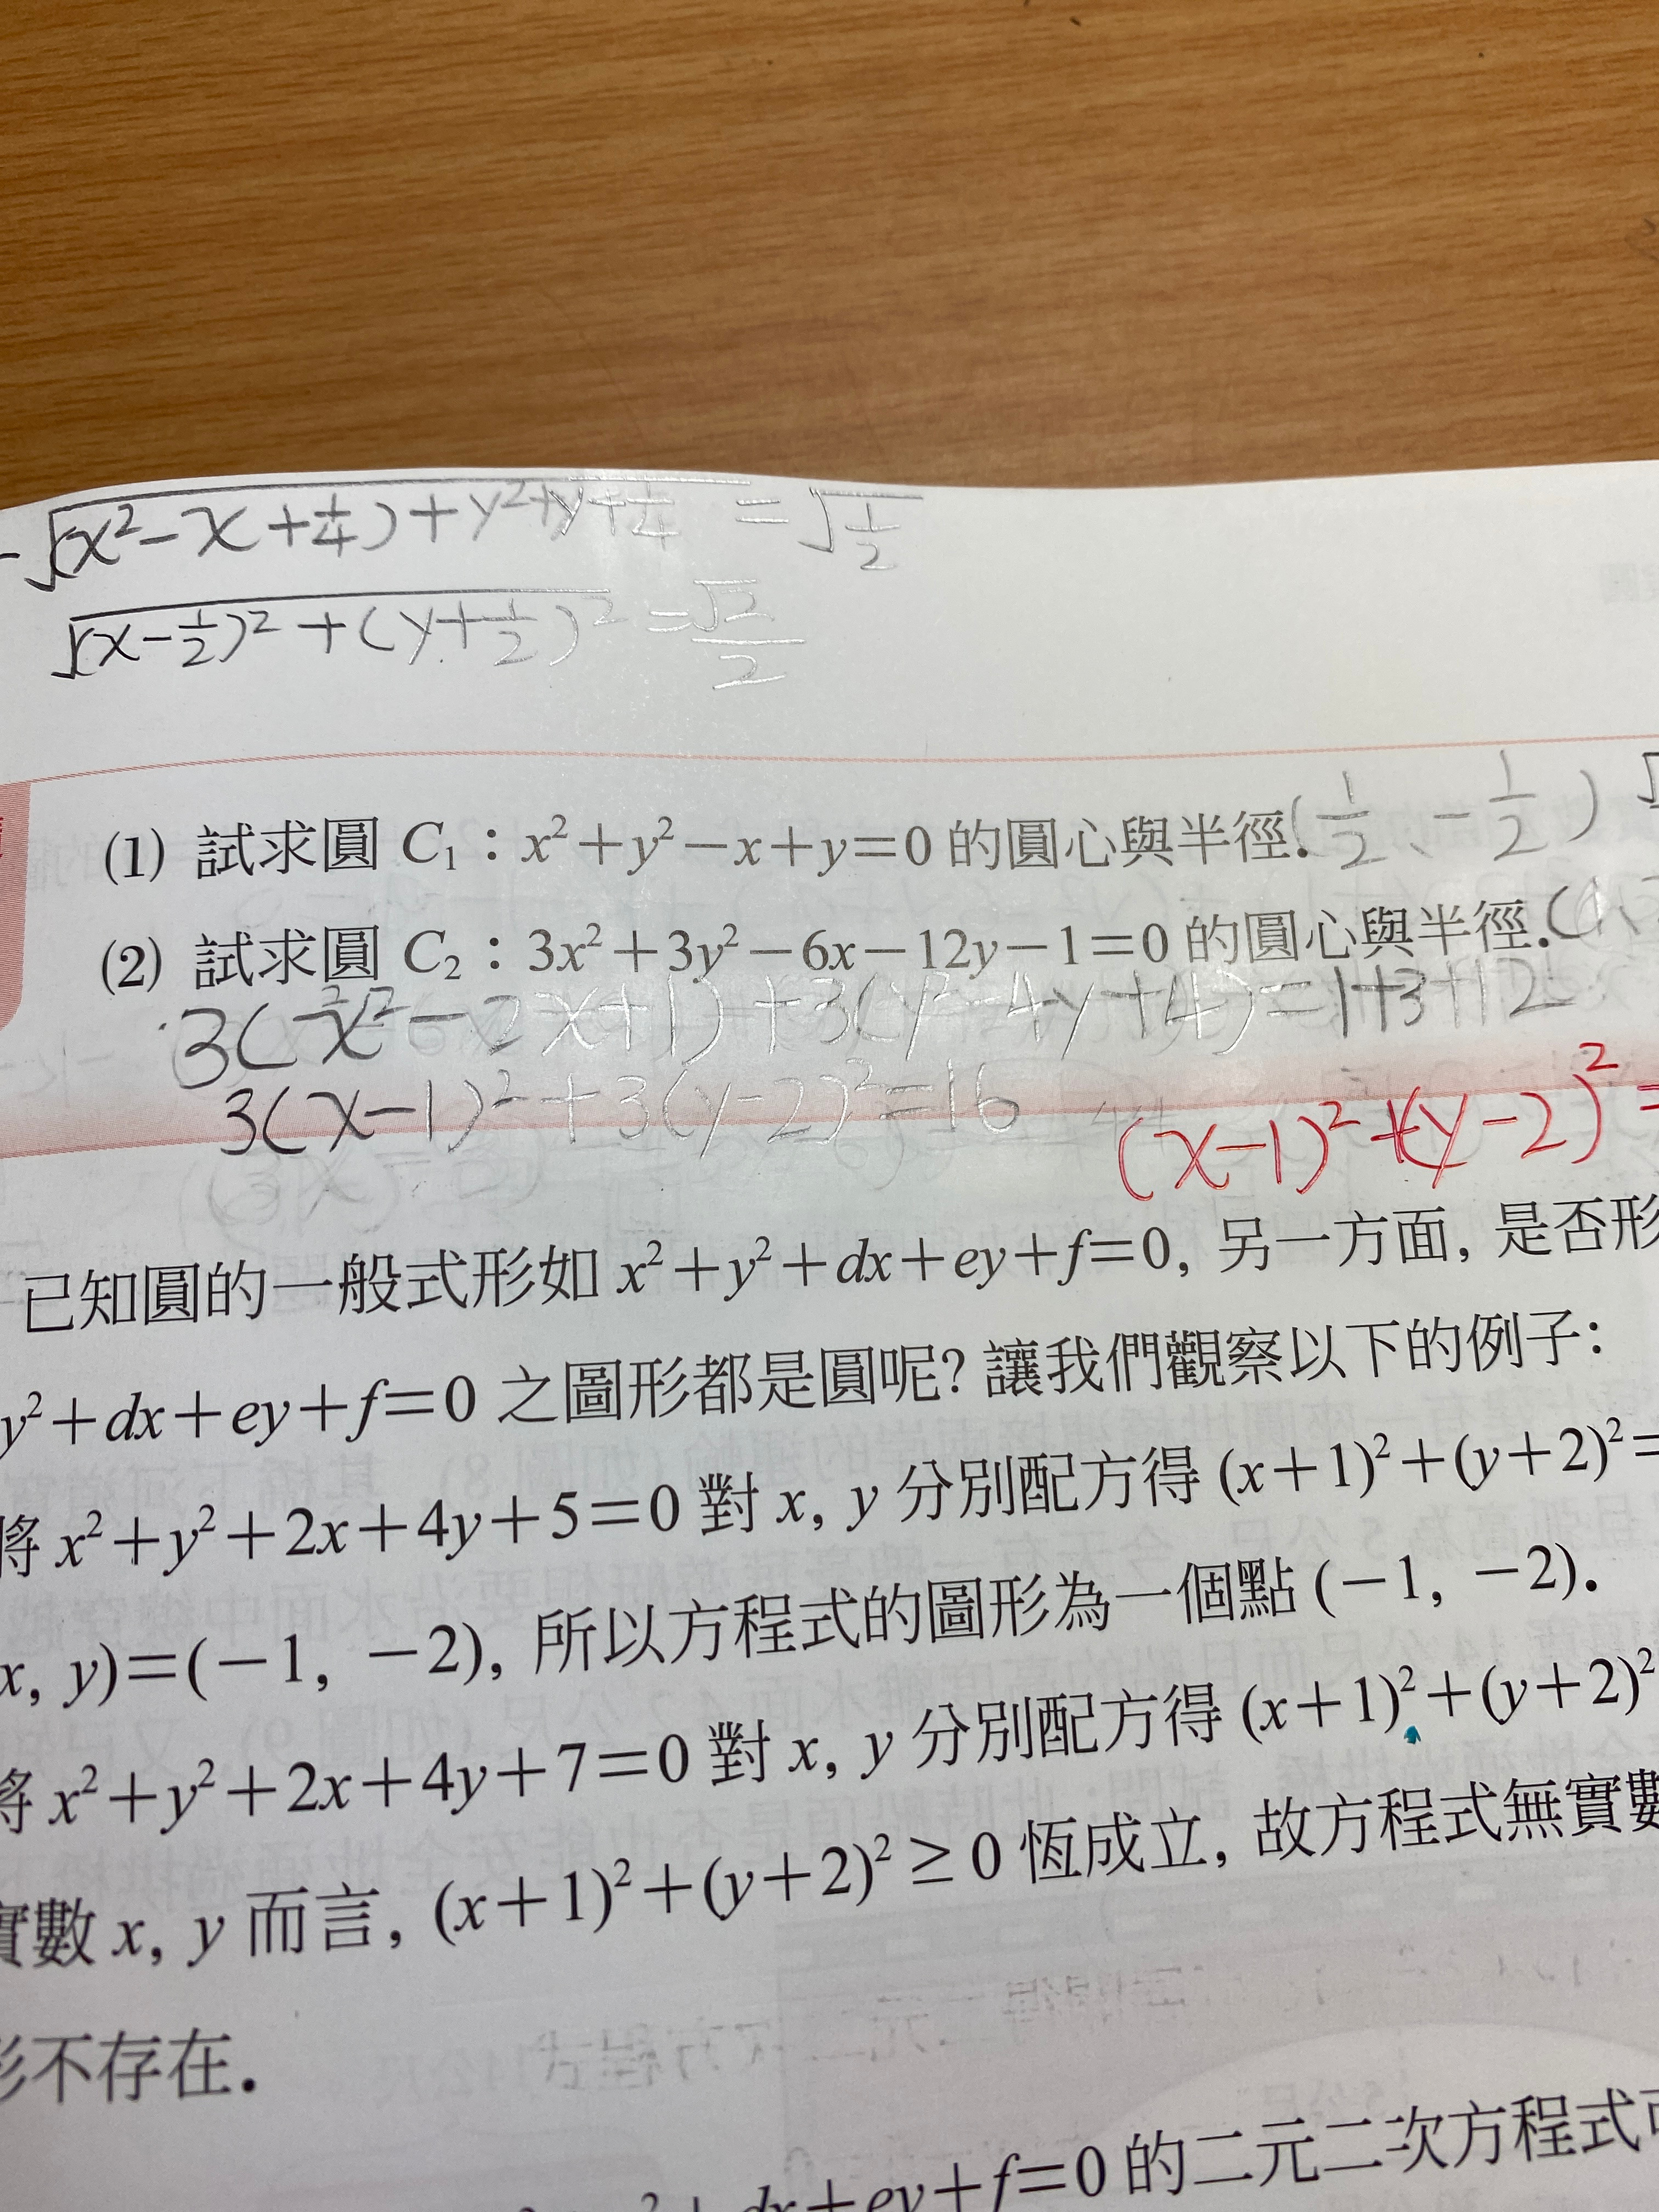 √(x²-x+1/4)+y²+y+1/4 = √1/2
√(x-1/2)²+(y+1/2)² = √2/2
(1) 試求圓 C₁：x²+y²-x+y=0 的圓心與半徑. (1/2、-1/2)
(2) 試求圓 C₂：3x²+3y²-6x-12y-1=0 的圓心與半徑. (1、
3(x²-2x+1)+3(y²-4y+4)=1+3+12
3(x-1)²+3(y-2)²=16
(x-1)²+(y-2)²=
已知圓的一般式形如 x²+y²+dx+ey+f=0, 另一方面, 是否形
y²+dx+ey+f=0 之圖形都是圓呢? 讓我們觀察以下的例子：
將 x²+y²+2x+4y+5=0 對 x, y 分別配方得 (x+1)²+(y+2)²=
x, y)=(-1, -2), 所以方程式的圖形為一個點 (-1, -2).
將 x²+y²+2x+4y+7=0 對 x, y 分別配方得 (x+1)²+(y+2)²
實數 x, y 而言, (x+1)²+(y+2)² ≥ 0 恆成立, 故方程式無實數
形不存在.
dx+ey+f=0 的二元二次方程式可